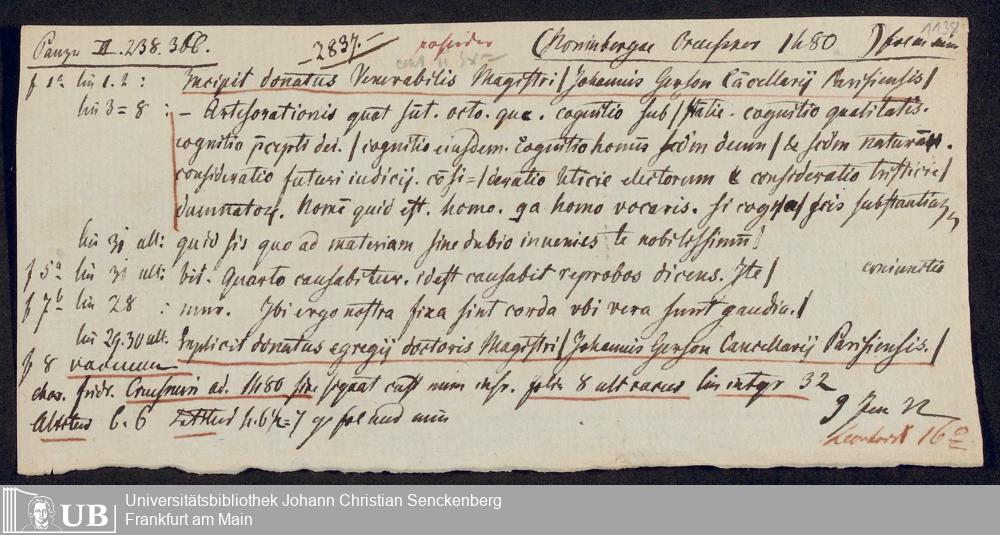 Panzer II. 238. 366. 2837.- possideo (Norimbergae Creusner 1480) fol in min 1138
f 1a lin 1. 2 : Incipit donatus Venerabilis Magistri / Johannis Gerson Cācellarij Parisiensis /
lin 3=8 : – Artes orationis quot sūt. octo. que. cognitio sub / statie. cognitio qualitatis.
cognitio pcepti dei. / cognitio eiusdem. cognitio hominis scdm deum / & scdm naturam.
consideratio futuri iudicij. cōsi=/deratio leticie electorum & consideratio tristicie /
damnatorum. Homē quid est. homo. qa homo vocaris. si cognosc / scis substantiam
lin 31 ult: quid sis quo ad materiam sine dubio inuenies te nobilissimū /
f 5a lin 31 ult: bit. Quarto causabitur. idest causabit reprobos dicens. Iste / coniunctio
f 7b lin 28 : mur. Ibi ergo nostra fixa sint corda vbi vera sunt gaudia. /
lin 29. 30 ult. Explicit donatus egregij doctoris Magistri / Johannis Gerson Cancellarij Parisiensis. /
f 8 vacuum
char. Fridr. Creusneri ad. 1480 sine signat cust num foliis 8 ult vacuo lin integr 32
Altitud 6. 6 Latitud 4. 6 1/2 = 7 gr fol med min 9 Jun 22
16